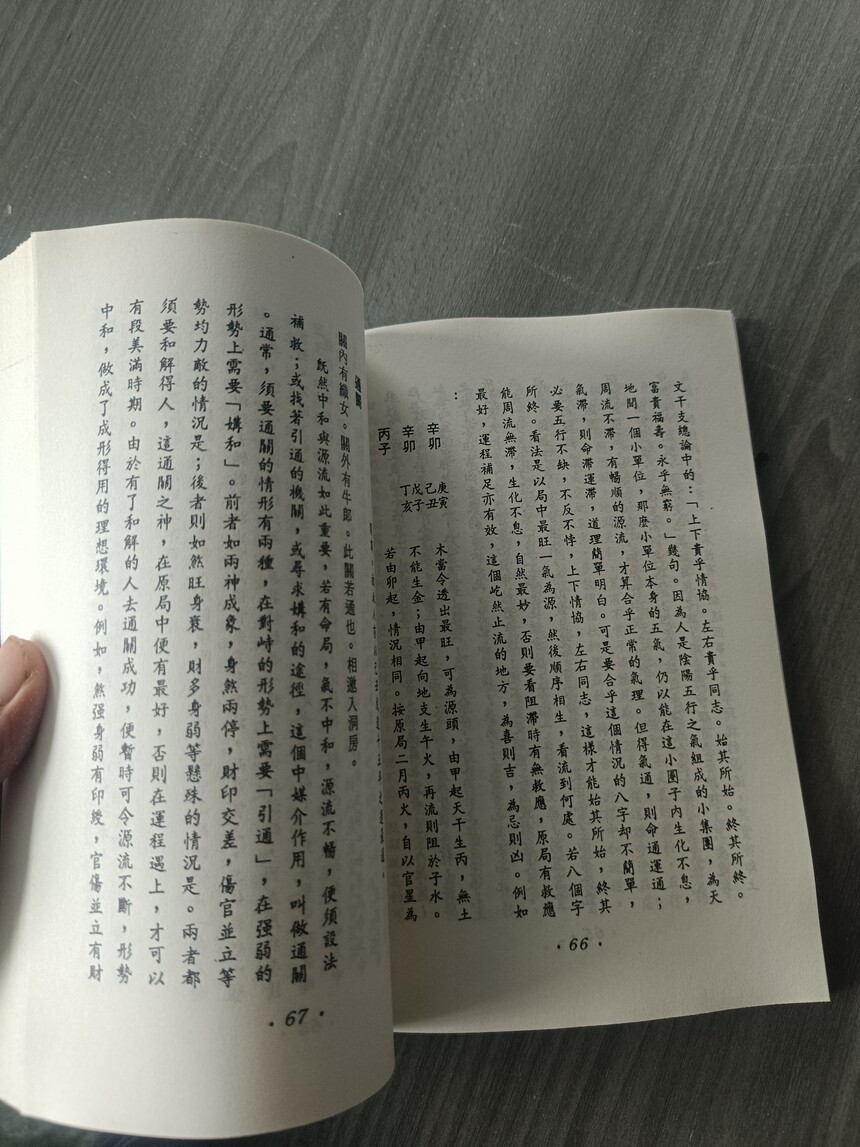 文干支總論中的：「上下貴乎情協。左右貴乎同志。始其所始。終其所終。
富貴福壽。永乎無窮。」幾句。因為人是陰陽五行之氣組成的小集團，為天
地間一個小單位，那麼小單位本身的五氣，仍以能在這小圈子內生化不息，
周流不滯，有暢順的源流，才算合乎正常的氣理。但得氣通，則命通運通；
氣滯，則命滯運滯，道理簡單明白。可是要合乎這個情況的八字却不簡單，
必要五行不缺，不反不悖，上下情協，左右同志，這樣才能始其所始，終其
所終。看法是以局中最旺一氣為源，然後順序相生，看流到何處。若八個字
能周流無滯，生化不息，自然最妙，否則要看阻滯時有無救應，原局有救應
最好，運程補足亦有效，這個屹然止流的地方，為喜則吉，為忌則凶。例如
：
辛卯 庚寅 木當令透出最旺，可為源頭，由甲起天干生丙，無土
辛卯 己丑 戊子 不能生金；由甲起向地支生午火，再流則阻於子水。
丙子 丁亥 若由卯起，情況相同。按原局二月丙火，自以官星為
·66·
通關
關內有織女。關外有牛郎。此關若通也。相邀入洞房。
既然中和與源流如此重要，若有命局，氣不中和，源流不暢，便須設法
補救；或找著引通的機關，或尋求媾和的途徑，這個中媒介作用，叫做通關
。通常，須要通關的情形有兩種，在對峙的形勢上需要「引通」，在强弱的
形勢上需要「媾和」。前者如兩神成象，身煞兩停，財印交差，傷官並立等
勢均力敵的情況是；後者則如煞旺身衰，財多身弱等懸殊的情況是。兩者都
須要和解得人，這通關之神，在原局中便有最好，否則在運程遇上，才可以
有段美滿時期。由於有了和解的人去通關成功，便暫時可令源流不斷，形勢
中和，做成了成形得用的理想環境。例如，煞强身弱有印綬，官傷並立有財
·67·